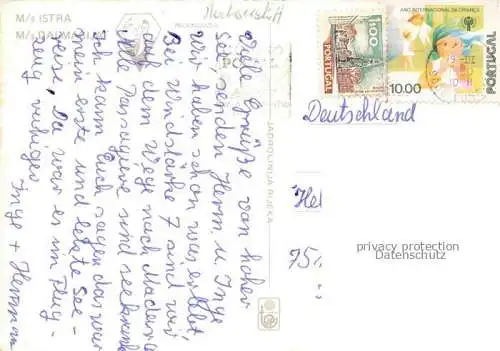 M/s ISTRA
M/s DALMACIJA
Viele Grüße von hoher
See, senden Herm. u. Inge
Wir haben schon was erlebt,
Bei Windstärke 7 sind wir
auf dem Wege nach Madeira
Alle Passagiere sind seekrank
Ich kann Euch sagen das war
meine erste und letzte See-
reise, Da war es im Flug-
zeug ruhiger
Inge + Hermann
JADROLINIJA RIJEKA
1.00
PORTUGAL
ANO INTERNACIONAL DA CRIANÇA
10.00
PORTUGAL
Deutschland
75
privacy protection
Datenschutz